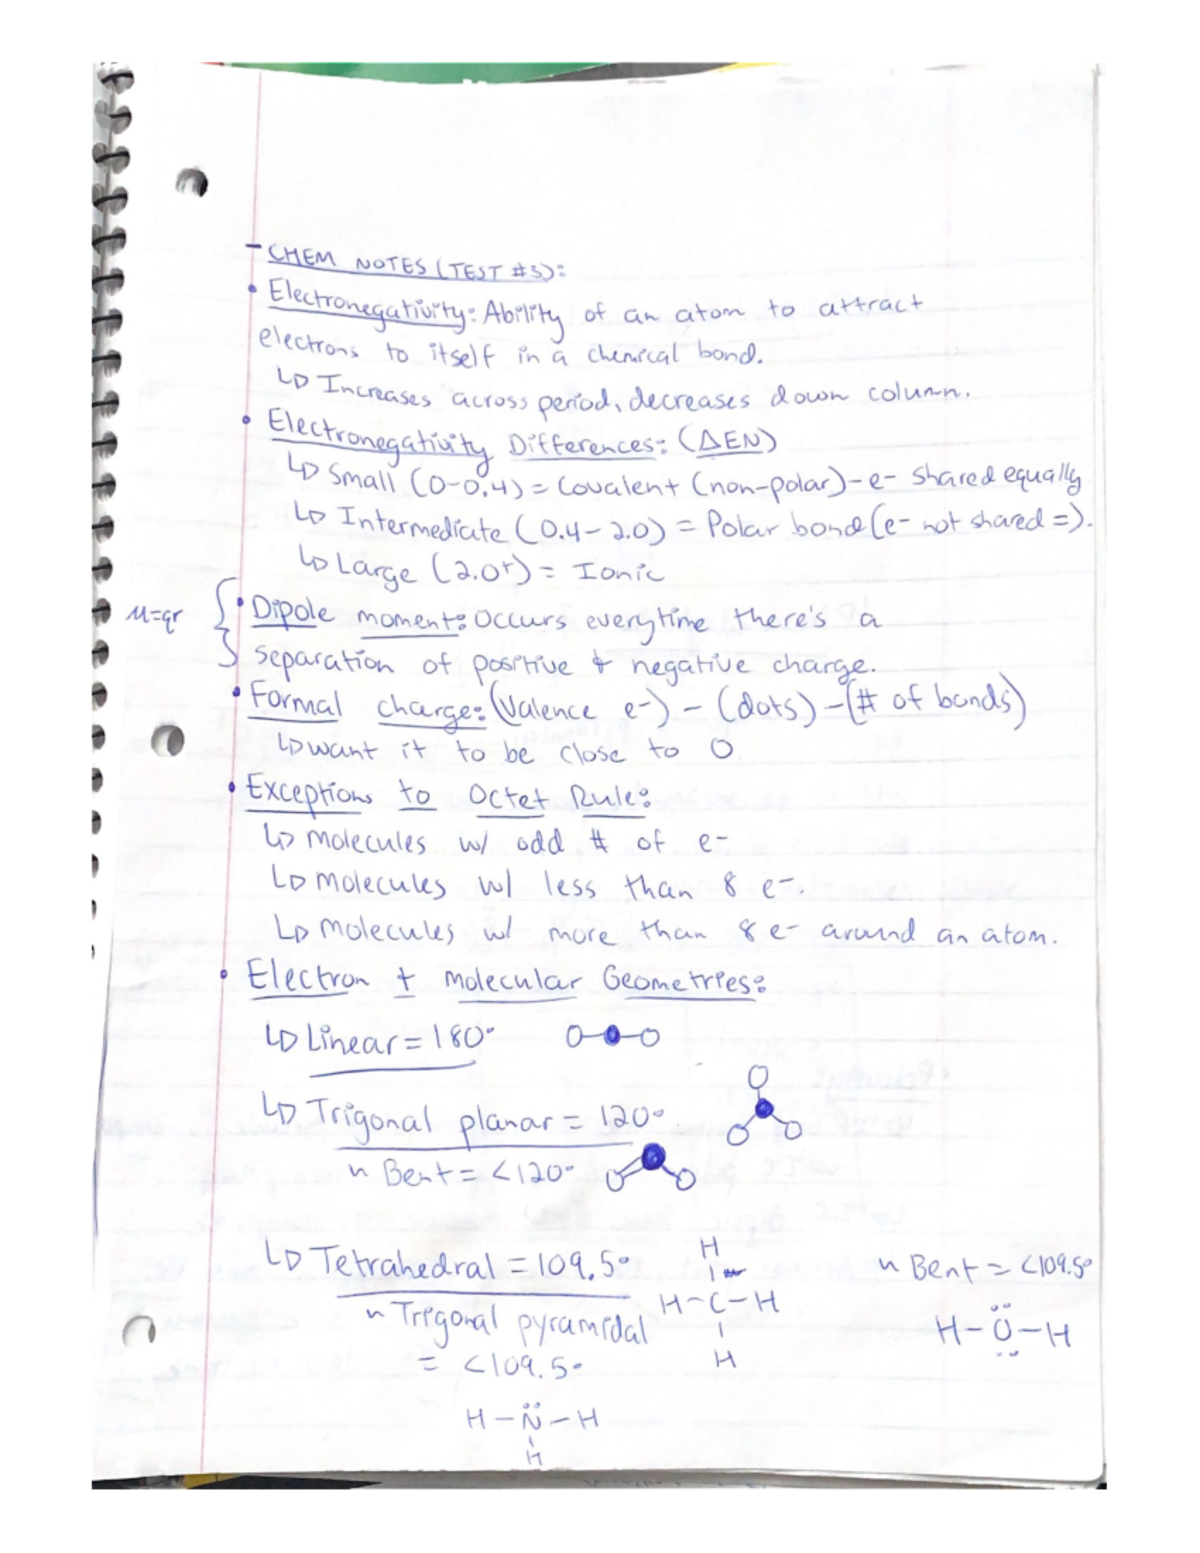 - CHEM NOTES (TEST #3):
• Electronegativity: Ability of an atom to attract
electrons to itself in a chemical bond.
↳ Increases across period, decreases down column.
• Electronegativity Differences: (ΔEN)
↳ Small (0-0.4) = Covalent (non-polar) - e- shared equally
↳ Intermediate (0.4-2.0) = Polar bond (e- not shared =).
↳ Large (2.0+) = Ionic
μ=qr
• Dipole moment: Occurs everytime there's a
separation of positive & negative charge.
• Formal charge: (Valence e-) - (dots) - (# of bonds)
↳ want it to be close to 0
• Exceptions to Octet Rule:
↳ molecules w/ odd # of e-
↳ molecules w/ less than 8 e-.
↳ molecules w/ more than 8 e- around an atom.
• Electron + molecular Geometries:
↳ Linear = 180°
↳ Trigonal planar = 120°
~ Bent = <120°
↳ Tetrahedral = 109.5°
H
H-C-H
H
~ Bent = <109.5°
H-Ö-H
~ Trigonal pyramidal
= <109.5°
H-N̈-H
H